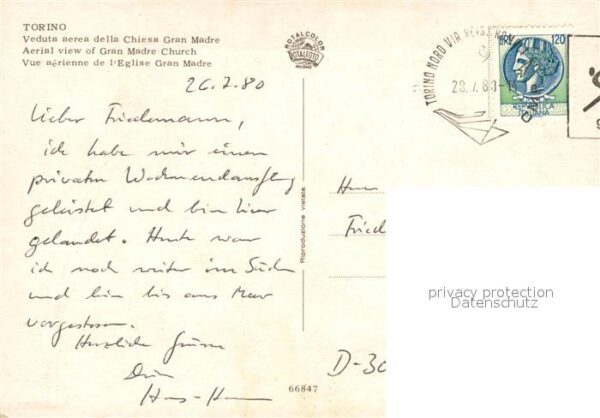 TORINO
Veduta aerea della Chiesa Gran Madre
Aerial view of Gran Madre Church
Vue aérienne de l'Eglise Gran Madre
ROTALCOLOR
ROTALFOTO
MILANO
TORINO NORD VIA REISS ROM
28.7.80
120
REPUBBLICA
ITALIANA
26.7.80
Lieber Friedemann,
ich habe mir einen
privaten Wochenendausflug
geleistet und bin hier
gelandet. Heute war
ich noch weiter im Süden
und bin bis ans Meer
vorgestossen.
Herzliche Grüsse
Dein
Hans-
Riproduzione vietata
Herrn
Fried
D-30
66847
privacy protection
Datenschutz